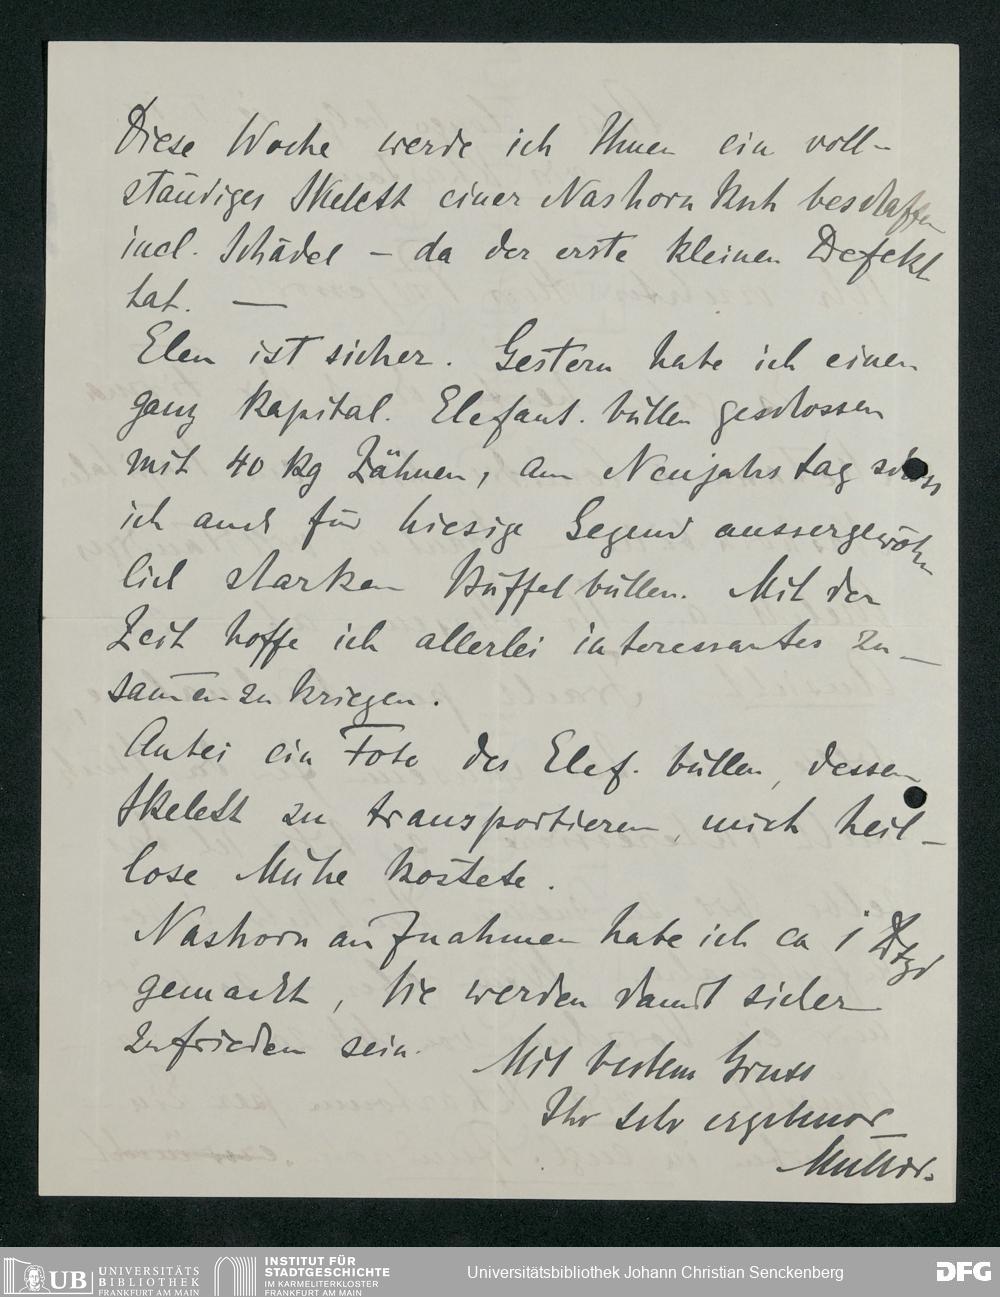 Diese Woche werde ich Ihnen ein voll-
ständiges Skelett einer Nashorn Kuh beschaffen
incl. Schädel – da der erste kleinen Defekt
hat. —
Elen ist sicher. Gestern habe ich einen
ganz kapital. Elefant. bullen geschossen
mit 40 kg Zähnen, am Neujahrstag schoss
ich auch für hiesige Gegend aussergewöhn
lich starken Büffelbullen. Mit der
Zeit hoffe ich allerlei interessantes zu-
sam̄en zu kriegen.
Anbei ein Foto des Elef. bullen, dessen
Skelett zu transportieren, mich heil-
lose Mühe kostete.
Nashorn aufnahmen habe ich ca 1 Dtzd
gemacht, Sie werden damit sicher
zufrieden sein.
Mit bestem Gruss
Ihr sehr ergebener
UB UNIVERSITÄTS
BIBLIOTHEK
FRANKFURT AM MAIN
INSTITUT FÜR
STADTGESCHICHTE
IM KARMELITERKLOSTER
FRANKFURT AM MAIN
Universitätsbibliothek Johann Christian Senckenberg
DFG